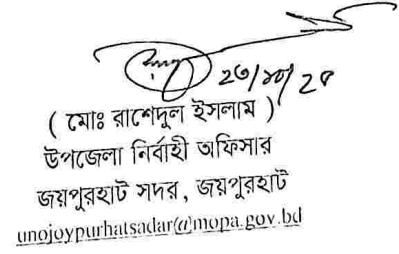 ২৩/১০/২৪
( মোঃ রাশেদুল ইসলাম )
উপজেলা নির্বাহী অফিসার
জয়পুরহাট সদর, জয়পুরহাট
unojoypurhatsadar@mopa.gov.bd